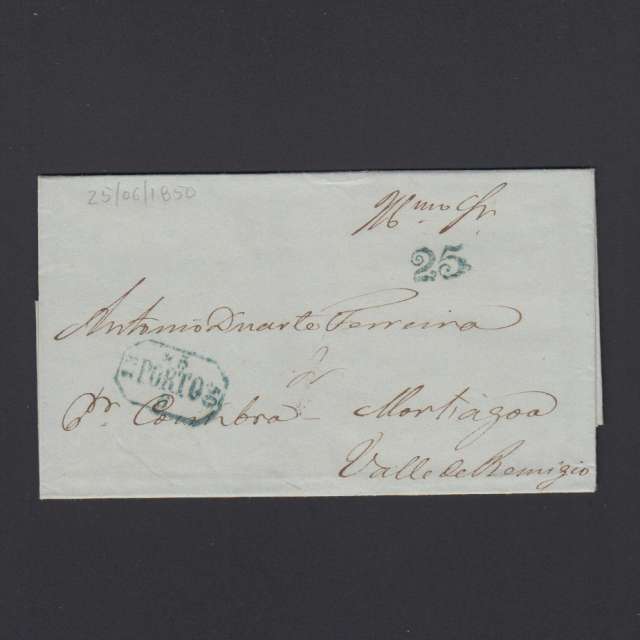 25/06/1850
Illmo Sr.
25
Antonio Duarte Ferreira
25
PORTO
Pr. Coimbra - Mortagoa
Valle de Remigio